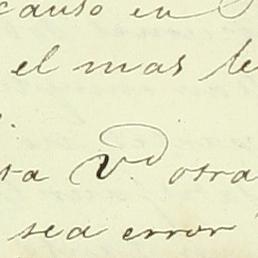 causo en
el mas le
ta V.d otra
sea error